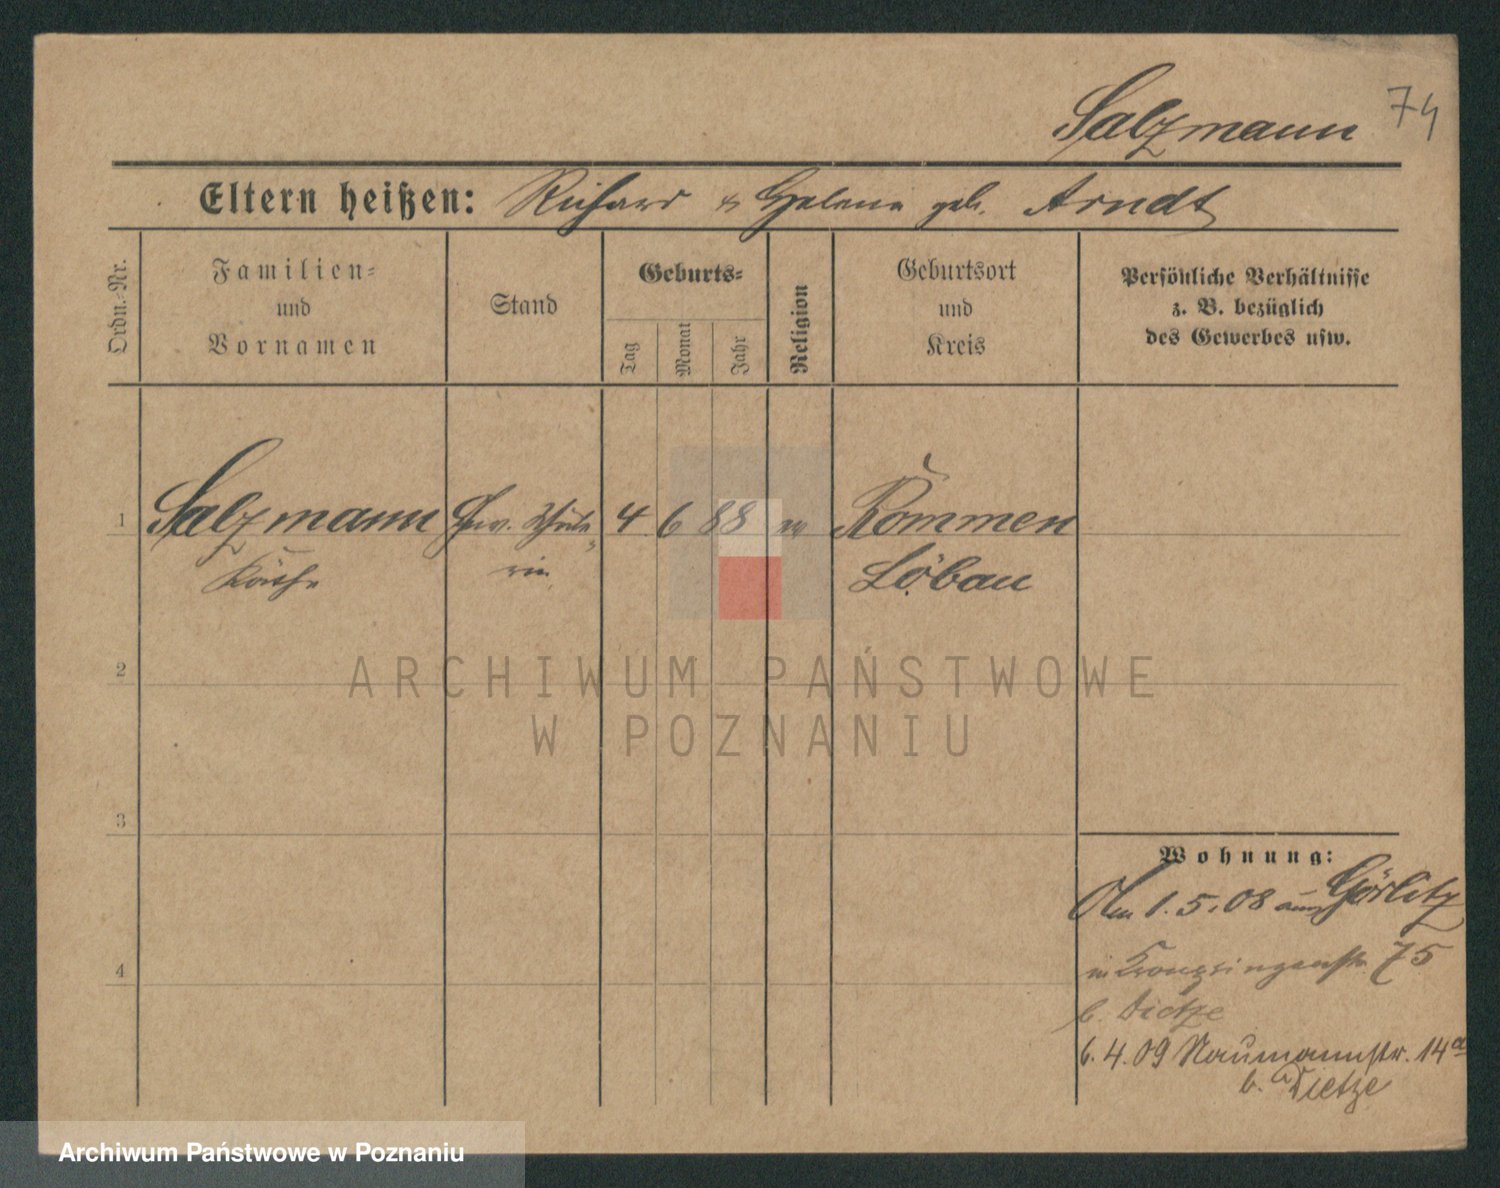 Salzmann 74
Eltern heißen: Richard u Helene geb. Arndt
Ordn.-Nr.
Familien-
und
Vornamen
Stand
Geburts-
Tag
Monat
Jahr
Religion
Geburtsort
und
Kreis
Persönliche Verhältnisse
z. B. bezüglich
des Gewerbes usw.
1 Salzmann Gew. Schüle- 4 6 88 Rommen
Käthe rin Löbau
2
ARCHIWUM PAŃSTWOWE
W POZNANIU
3
Wohnung:
1.5.08 aus Görlitz
4
in Kronprinzenstr. 75
b. Dietze
6.4.09 Naumannstr. 14a
b. Dietze
Archiwum Państwowe w Poznaniu